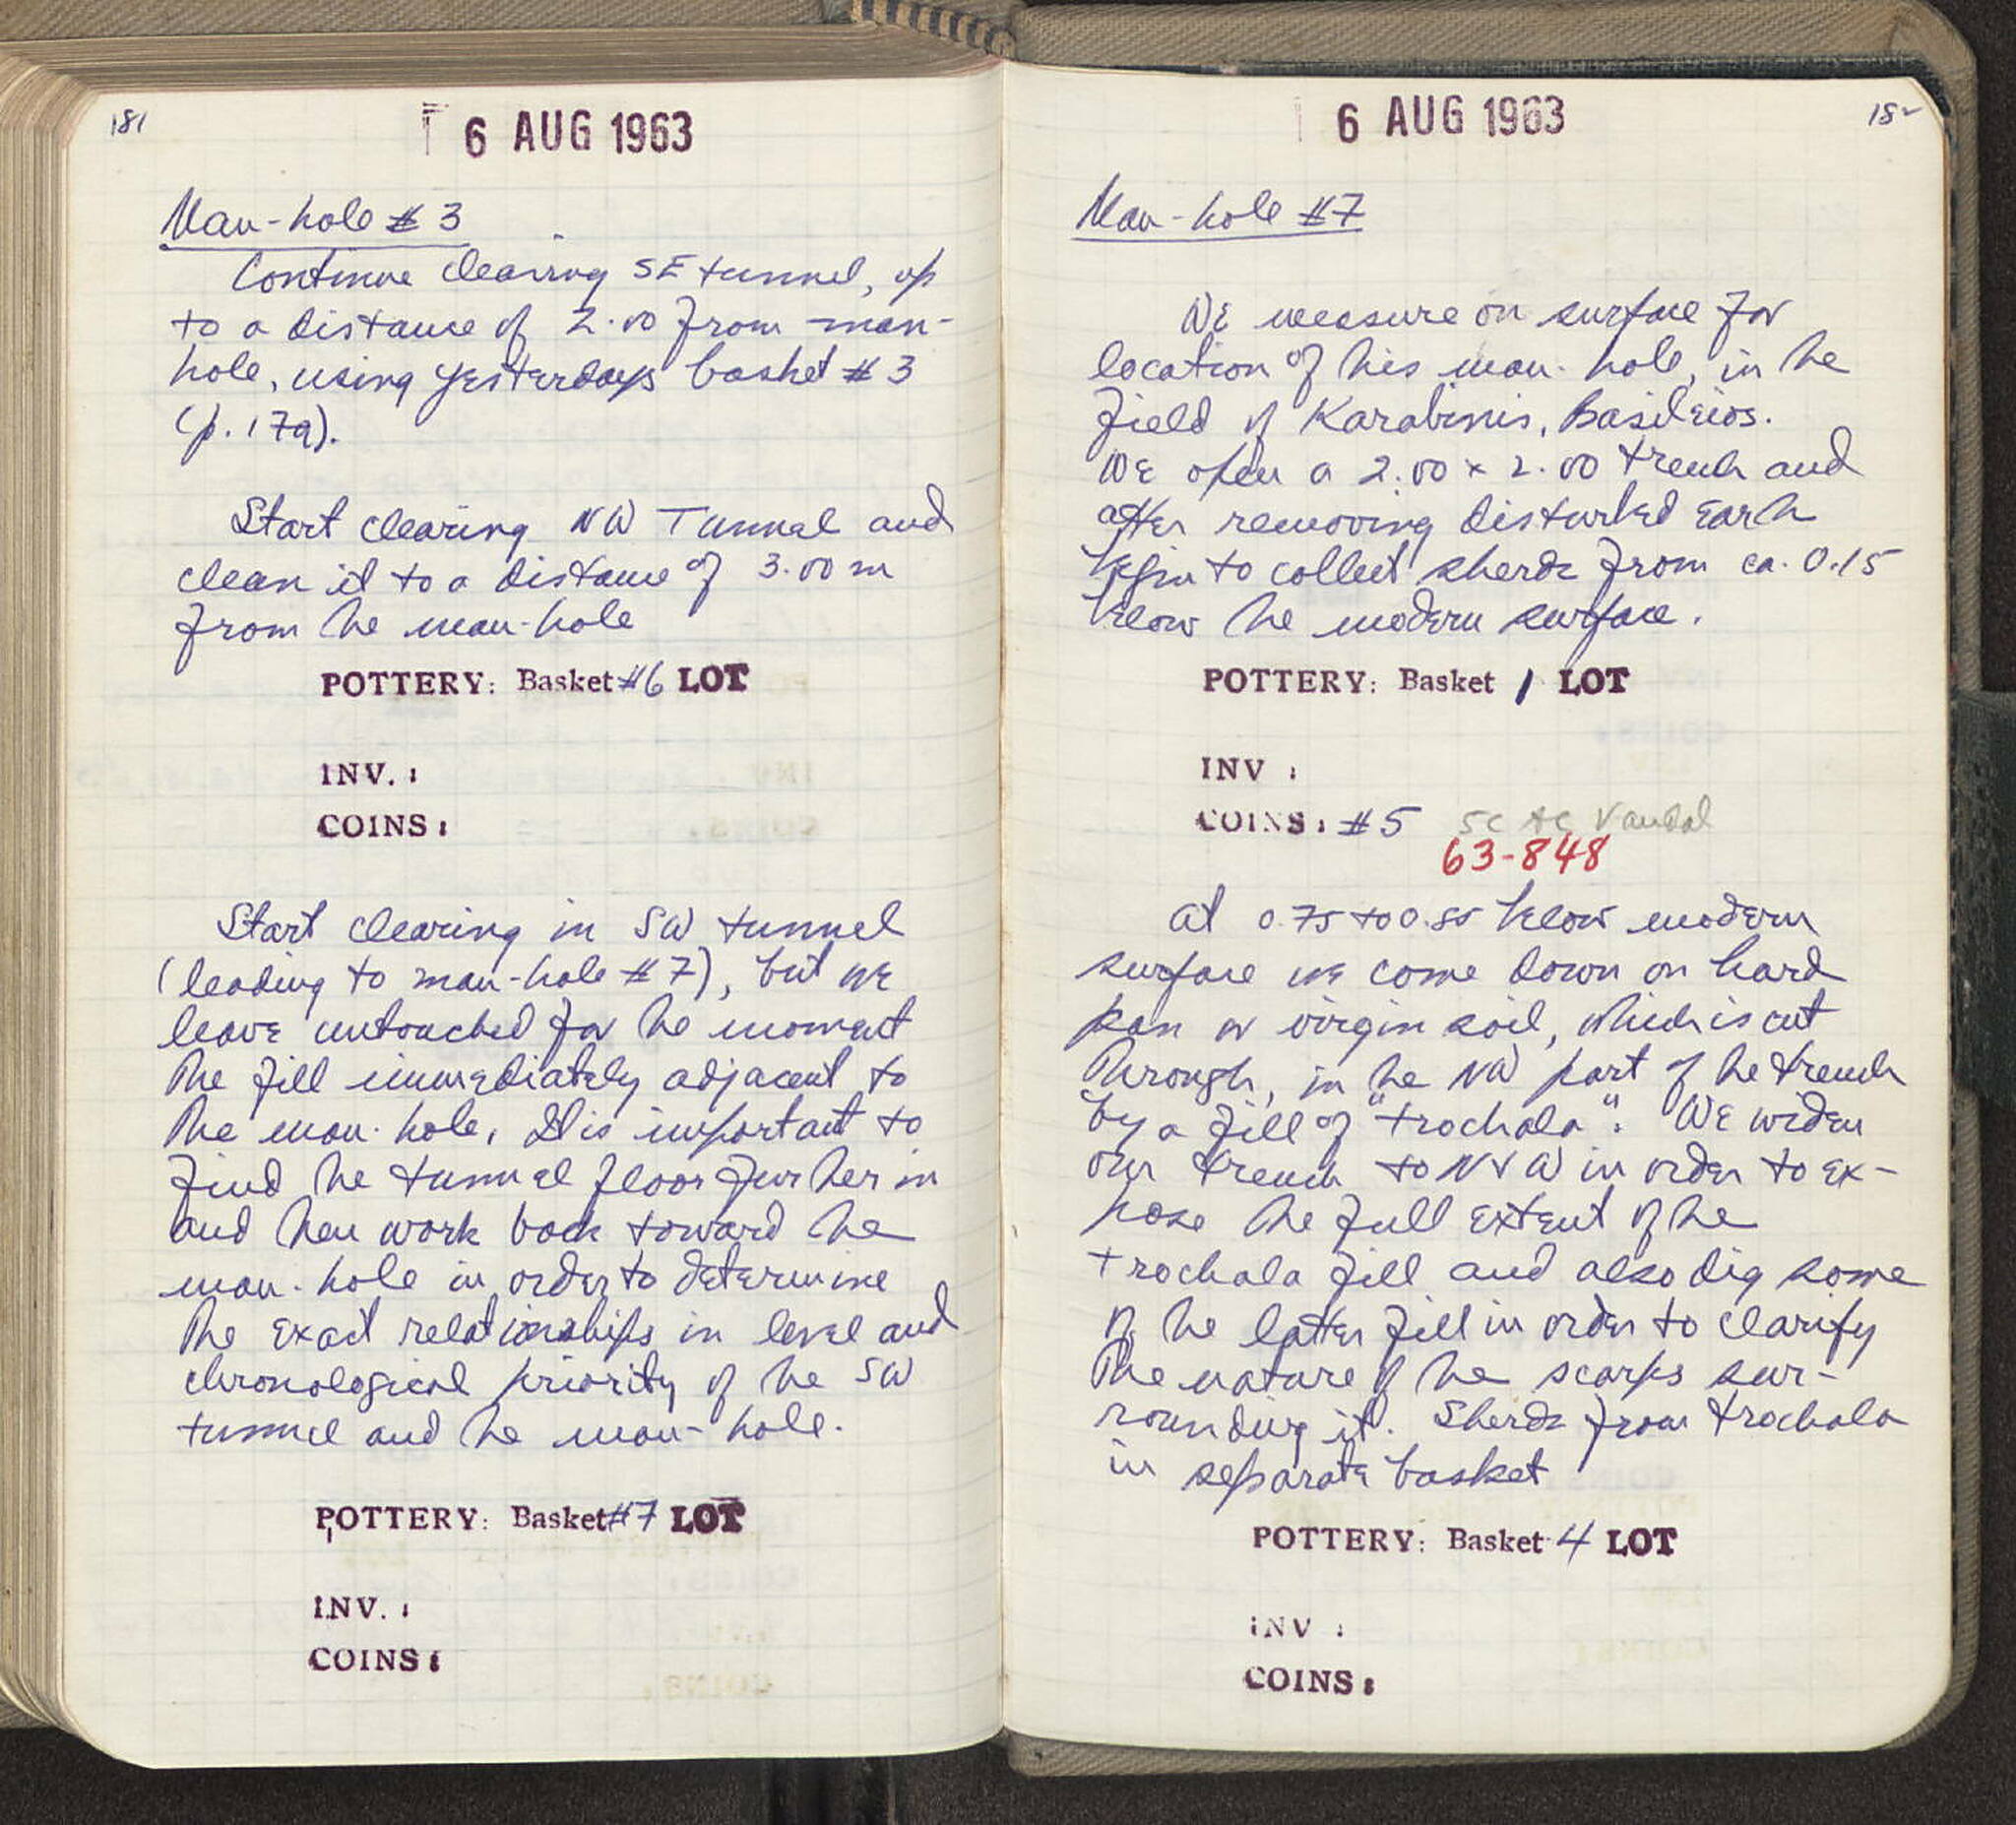 181
6 AUG 1963
Man-hole # 3
Continue clearing SE tunnel, up
to a distance of 2.00 from man-
hole, using yesterdays basket # 3
(p. 179).
Start clearing NW Tunnel and
clean it to a distance of 3.00 m
from the man-hole
POTTERY: Basket #6 LOT
INV. :
COINS :
Start clearing in SW tunnel
(leading to man-hole # 7), but we
leave untouched for the moment
the fill immediately adjacent to
the man-hole. It is important to
find the tunnel floor further in
and then work back toward the
man-hole in order to determine
the exact relationships in level and
chronological priority of the SW
tunnel and the man-hole.
POTTERY: Basket #7 LOT
INV. :
COINS :
182
6 AUG 1963
Man-hole #7
We measure on surface for
location of this man-hole, in the
field of Karabinis, Basileios.
We open a 2.00 x 2.00 trench and
after removing disturbed earth
begin to collect sherds from ca. 0.15
below the modern surface.
POTTERY: Basket 1 LOT
INV :
COINS : #5 5c AE Vandal
63-848
At 0.75 to 0.85 below modern
surface we come down on hard
pan or virgin soil, which is cut
through, in the NW part of the trench
by a fill of "trochala". We widen
our trench to N + W in order to ex-
pose the full extent of the
trochala fill and also dig some
of the latter fill in order to clarify
the nature of the scarps sur-
rounding it. Sherds from trochala
in separate basket
POTTERY: Basket 4 LOT
INV :
COINS :